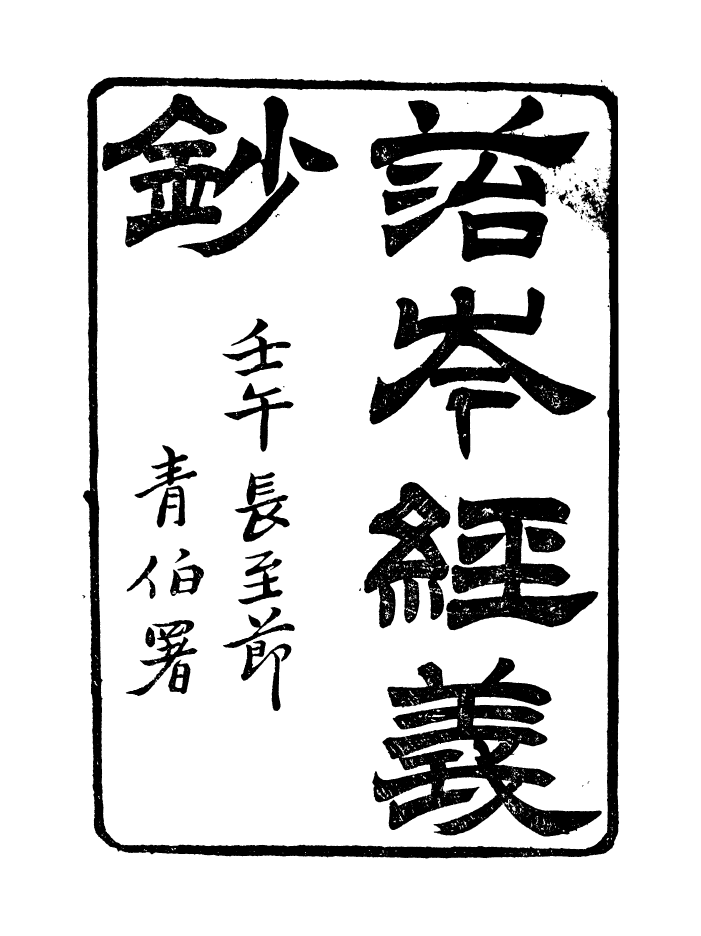 菭岑經義
鈔
壬午長至節
青伯署